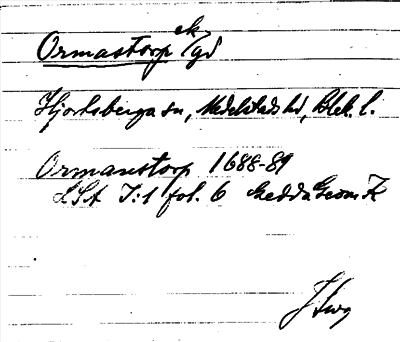 Ormastorp ek/gd
Hjortsberga sn, Medelstads hd, Blek. l.
Ormanstorp 1688-89
LSA I:1 fol. 6 Gedda Geom. K